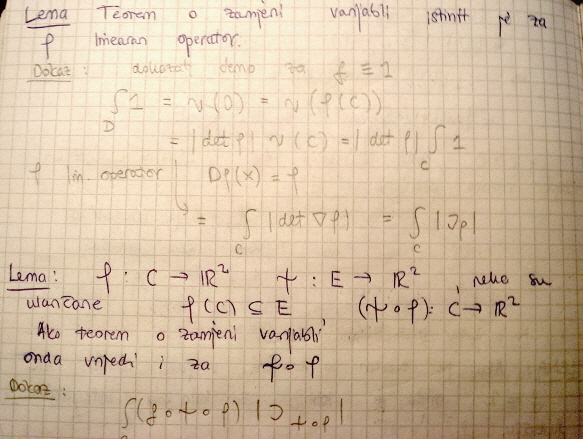 Lema Teorem o zamjeni varijabli istinit je za
φ linearan operator.
Dokaz: dokazat ćemo za f ≡ 1
∫_D 1 = ν(D) = ν(φ(C))
= |det φ| ν(C) = |det φ| ∫_C 1
φ lin. operator Dφ(x) = φ
= ∫_C |det ∇φ| = ∫_C |Jφ|
Lema: φ : C → ℝ² ψ : E → ℝ², neka su
ulančane φ(C) ⊆ E (ψ∘φ): C → ℝ²
Ako teorem o zamjeni varijabli
onda vrijedi i za ψ∘φ
Dokaz:
∫(f∘ψ∘φ) |J_ψ∘φ|